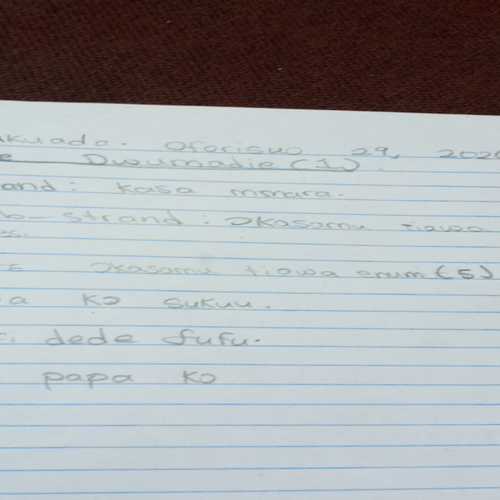 kuada. Oforisuo 29, 2020
Dwumadie (1)
and: kasa mmara.
b-strand: Ɔkasamu tiawa
es.
Ɔkasamu tiawa enum (5)
a ko sukuu.
dede fufu.
papa ko